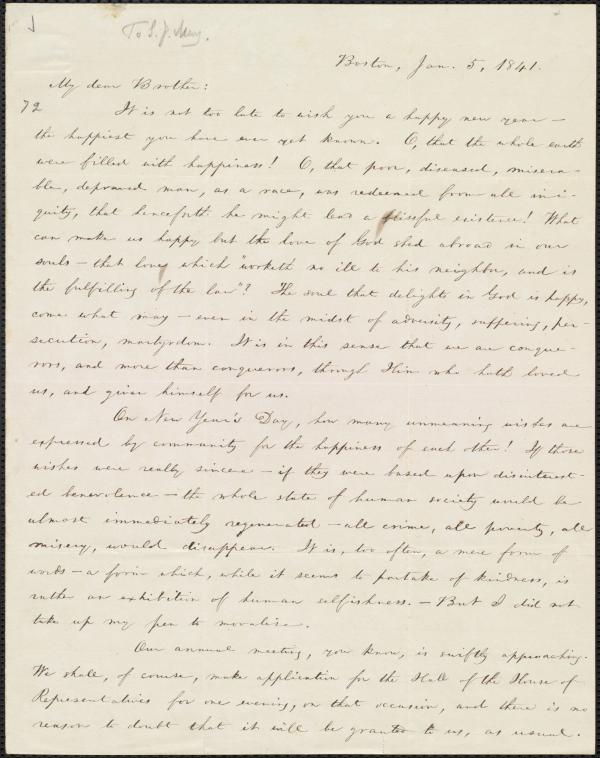 To S. J. May.
Boston, Jan. 5, 1841.
My dear Brother:
72
It is not too late to wish you a happy new year —
the happiest you have ever yet known. O, that the whole earth
were filled with happiness! O, that poor, diseased, misera-
ble, depraved man, as a race, was redeemed from all ini-
quity, that henceforth he might lead a blissful existence! What
can make us happy but the love of God shed abroad in our
souls — that love which "worketh no ill to his neighbor, and is
the fulfilling of the law"? The soul that delights in God is happy,
come what may — even in the midst of adversity, suffering, per-
secution, martyrdom. It is in this sense that we are conque-
rors, and more than conquerors, through Him who hath loved
us, and given himself for us.
On New Year's Day, how many unmeaning wishes are
expressed by community for the happiness of each other! If those
wishes were really sincere — if they were based upon disinterest-
ed benevolence — the whole state of human society would be
almost immediately regenerated — all crime, all poverty, all
misery, would disappear. It is, too often, a mere form of
words — a form which, while it seems to partake of kindness, is
rather an exhibition of human selfishness. — But I did not
take up my pen to moralise.
Our annual meeting, you know, is swiftly approaching.
We shall, of course, make application for the Hall of the House of
Representatives for one evening, on that occasion, and there is no
reason to doubt that it will be granted to us, as usual.